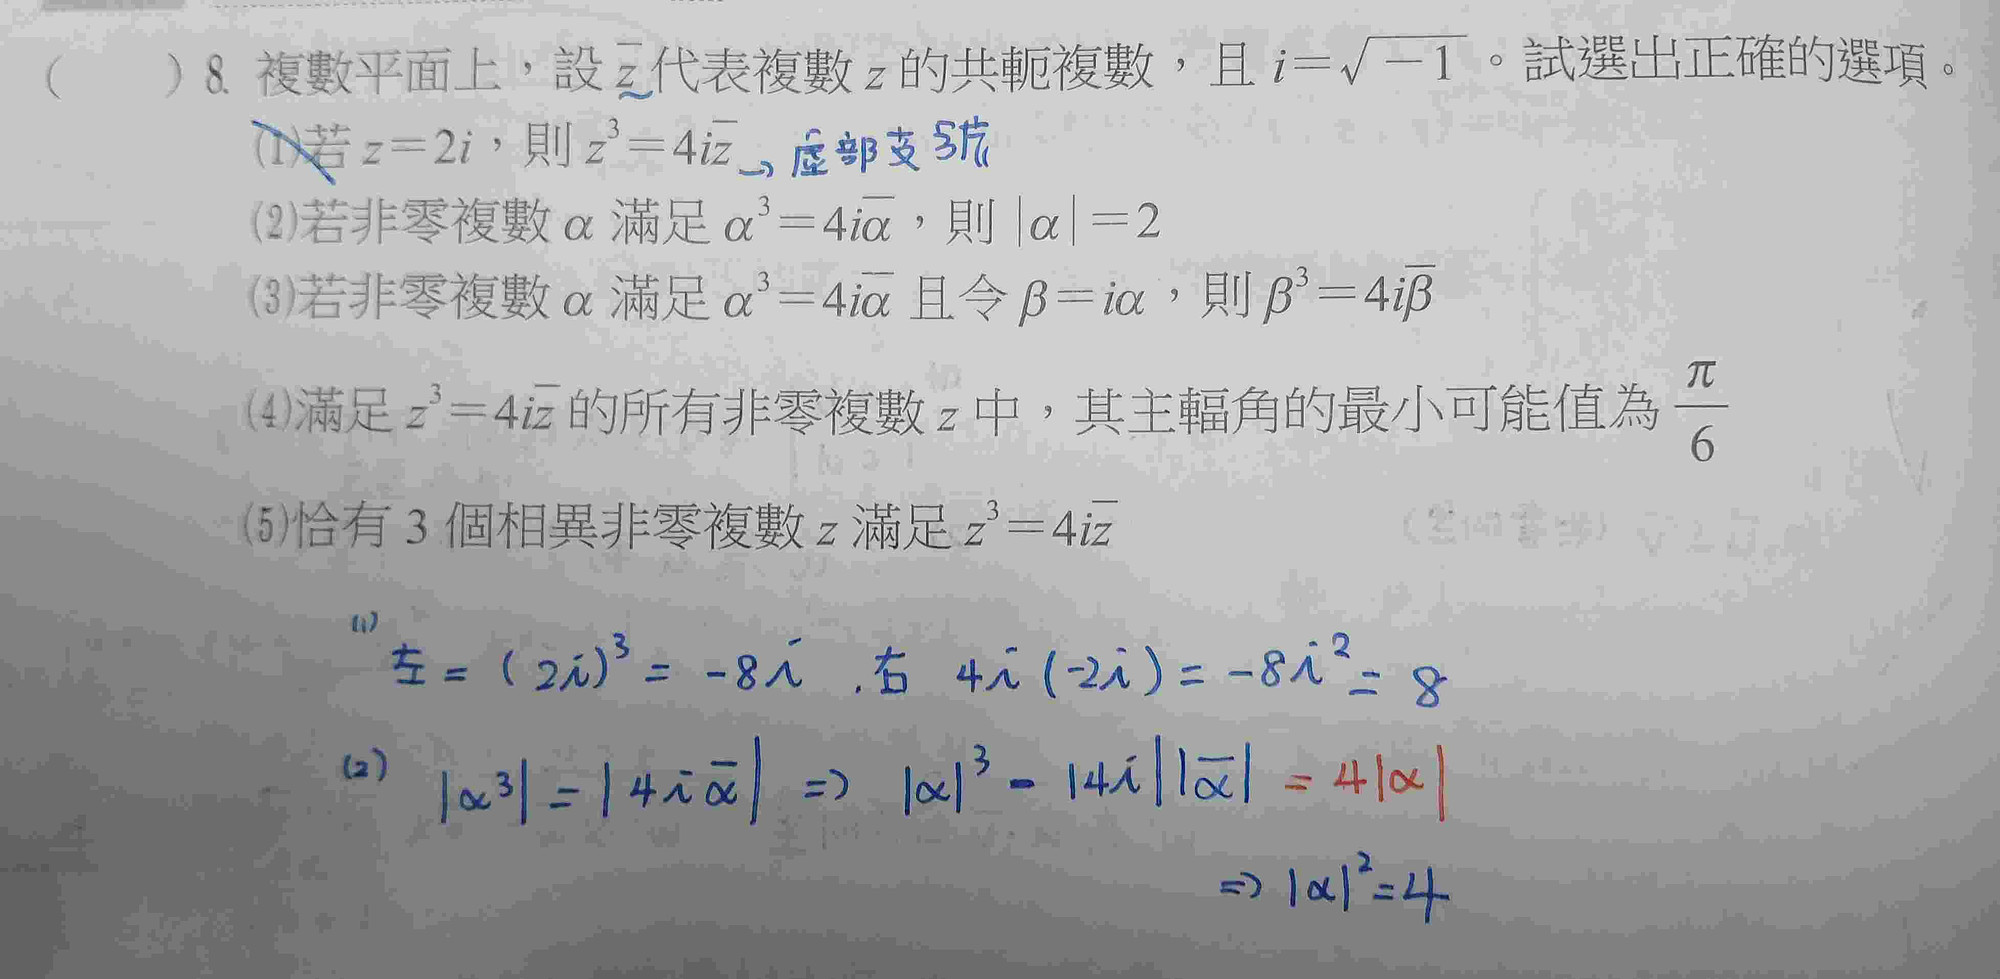 ( ) 8. 複數平面上，設 z̅ 代表複數 z 的共軛複數，且 i＝√−1。試選出正確的選項。
(1)若 z＝2i，則 z³＝4iz̅ → 虛部变号
(2)若非零複數 α 滿足 α³＝4iα̅，則 |α|＝2
(3)若非零複數 α 滿足 α³＝4iα̅ 且令 β＝iα，則 β³＝4iβ̅
(4)滿足 z³＝4iz̅ 的所有非零複數 z 中，其主輻角的最小可能值為 π/6
(5)恰有 3 個相異非零複數 z 滿足 z³＝4iz̅
(1) 左 = (2i)³ = -8i . 右 4i(-2i) = -8i² = 8
(2) |α³| = |4iα̅| ⇒ |α|³ = |4i||α̅| = 4|α|
⇒ |α|² = 4